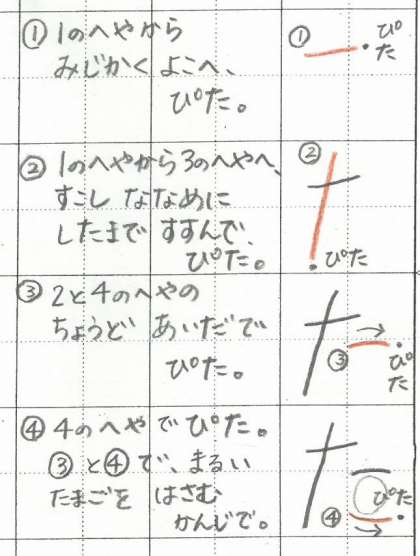 ① 1のへやから
みじかく よこへ、
ぴた。
① ぴた
② 1のへやから3のへやへ、
すこし ななめに
したまで すすんで、
ぴた。
②
ぴた
③ 2と4のへやの
ちょうど あいだで
ぴた。
③ ぴた
④ 4のへや でぴた。
③と④で、まるい
たまごを はさむ
かんじで。
④ ぴた